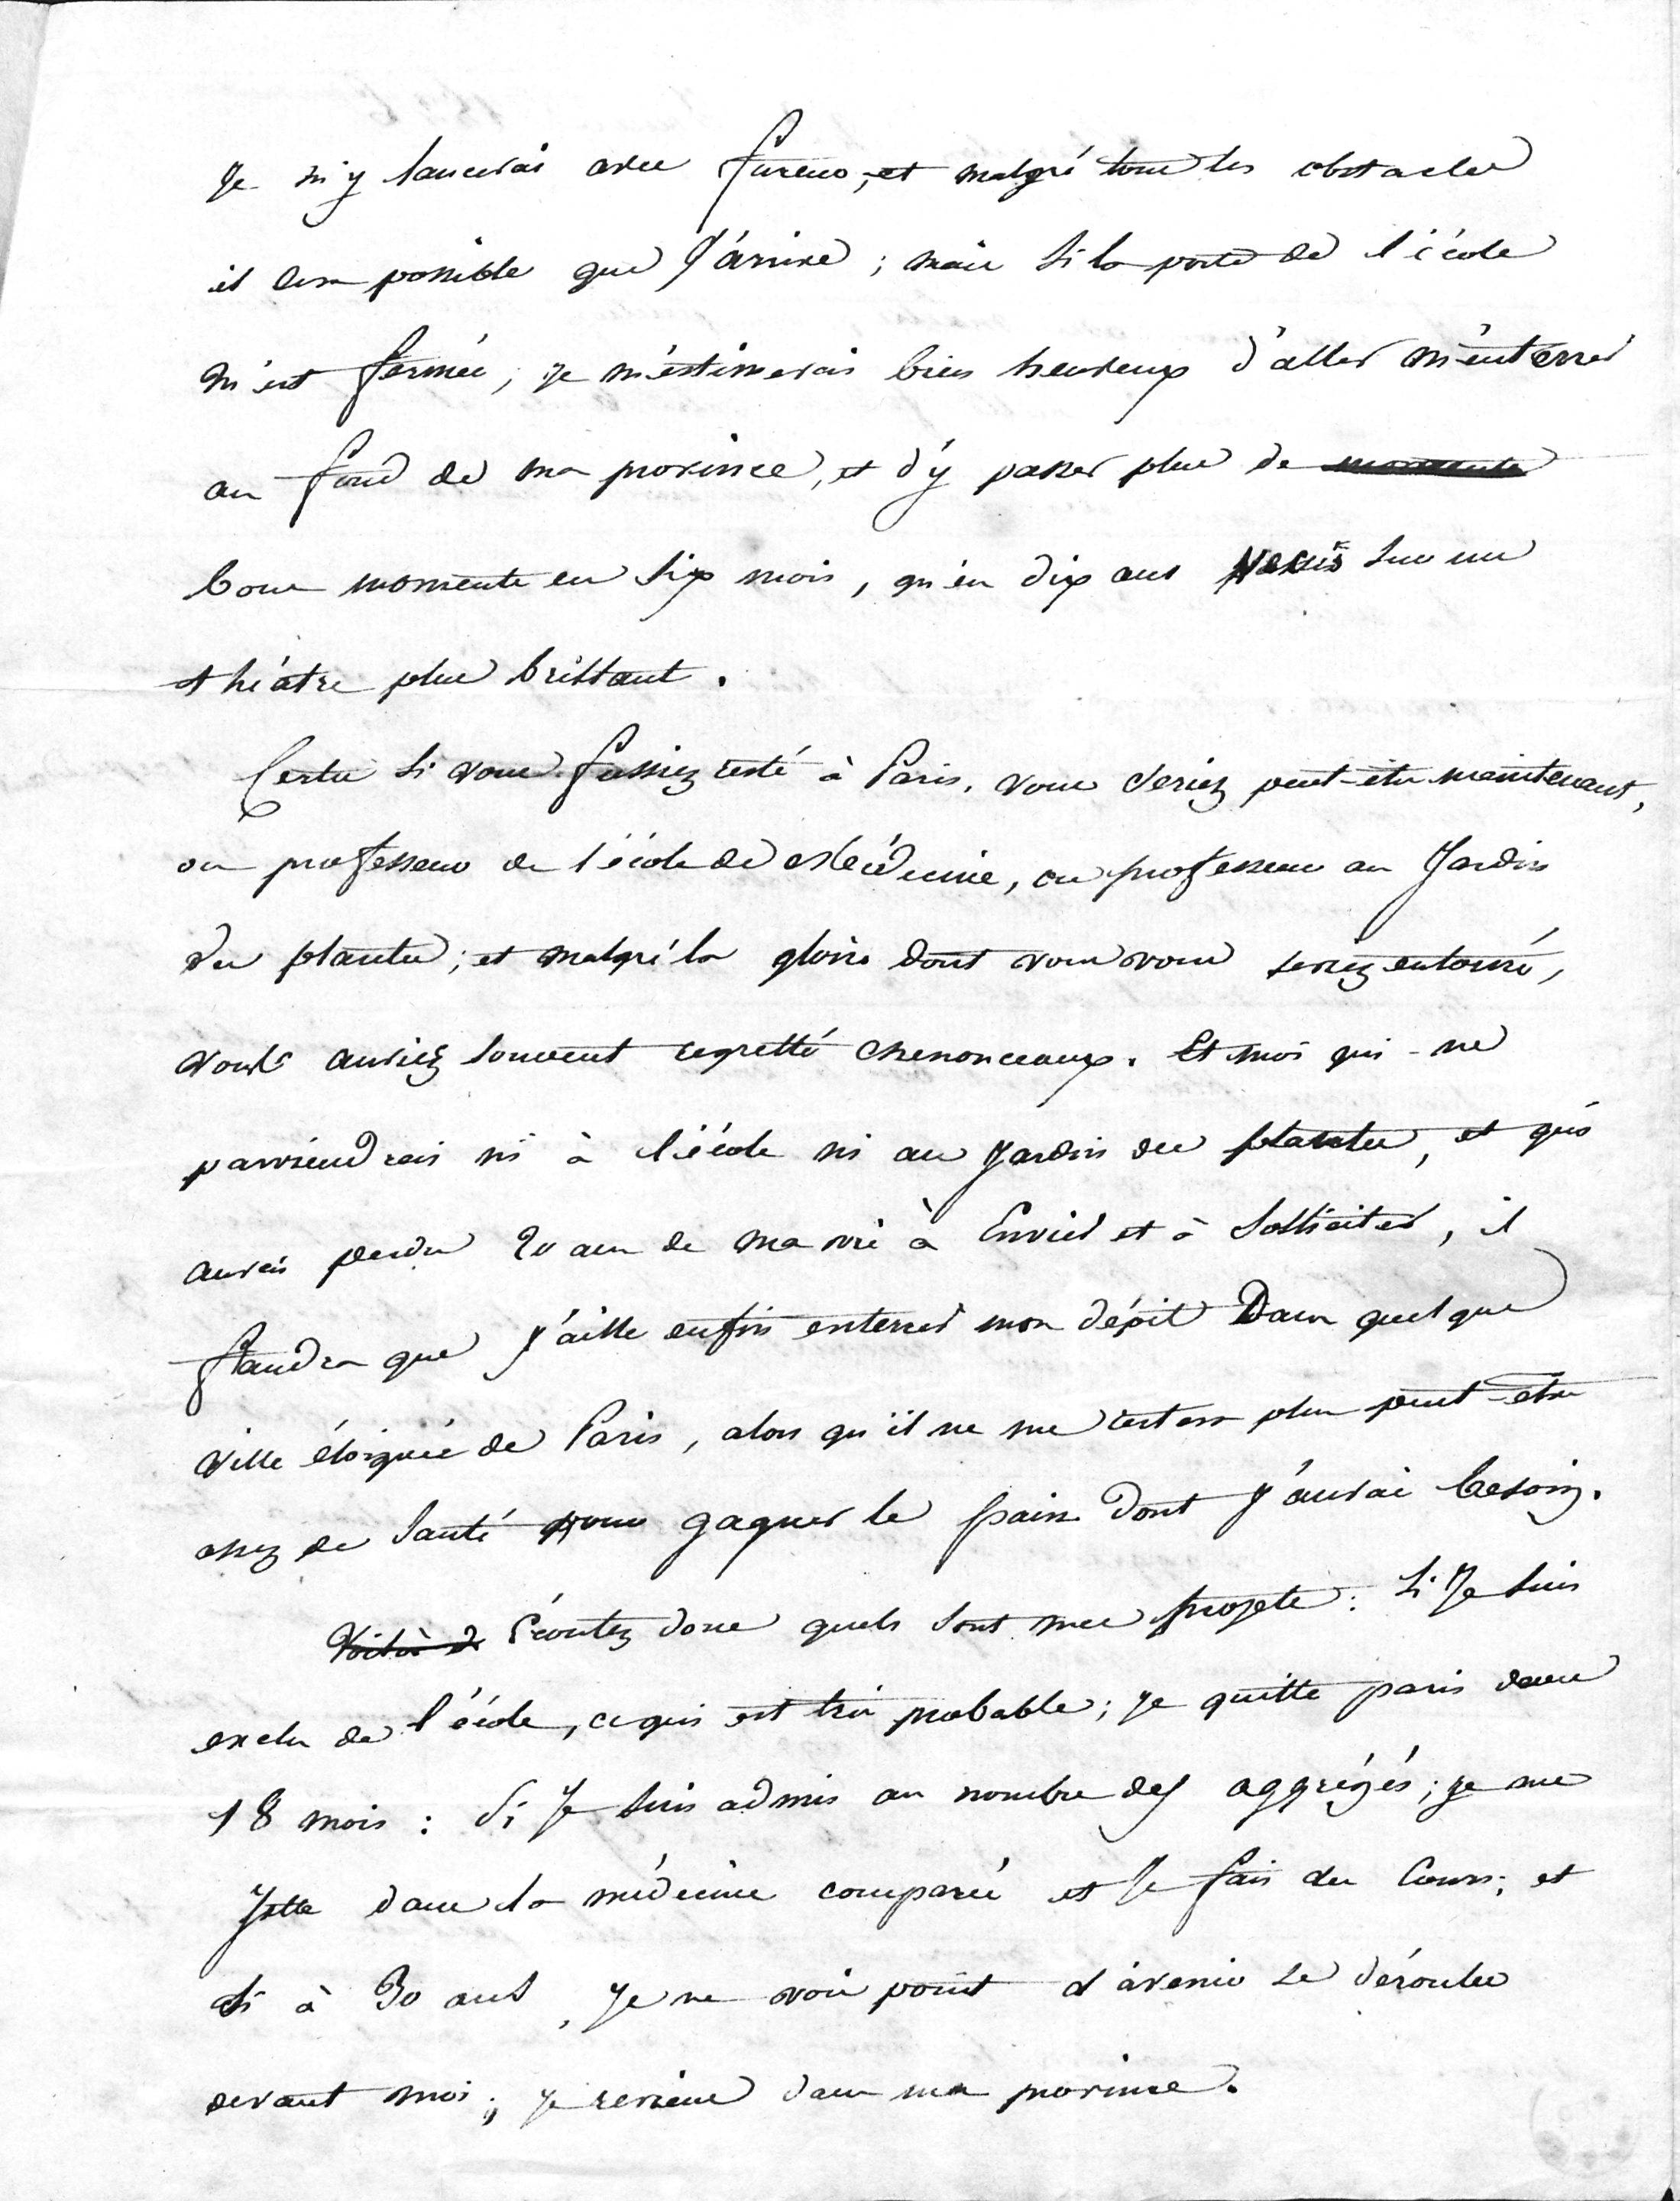 Je m'y lancerai avec fureur, et malgré tous les obstacles
il est possible que j'arrive ; mais si la porte de l'école
m'est fermée, je m'estimerais bien heureux d'aller m'enterrer
au fond de ma province, et d'y passer plus de moments
bons moments en six mois, qu'en dix ans sur un
théatre plus brillant.
Certes si vous fussiez resté à Paris, vous seriez peut-être maintenant,
ou professeur de l'école de Médecine, ou professeur au Jardin
des plantes ; et malgré la gloire dont vous vous seriez entouré,
vous auriez souvent regretté chenonceaux. Et moi qui ne
parviendrai ni à l'école ni au Jardin des plantes, et qui
aurai perdu 20 ans de ma vie à Envier et à Solliciter, il
faudra que j'aille enfin enterrer mon dépit Dans quelque
ville éloignée de Paris, alors qu'il ne me restera plus peut-être
assez de santé pour gagner le pain dont j'aurai besoin.
Voilà d Ecoutez donc quels sont mes projets : Si Je suis
exclu de l'école, ce qui est très probable ; je quitte paris dans
18 mois : Si Je suis admis au nombre des aggrégés ; je me
Jette dans la médecine comparée et Je fais des Cours ; et
si à 30 ans, Je ne vois point d'avenir se dérouler
devant moi ; je reviens dans ma province.